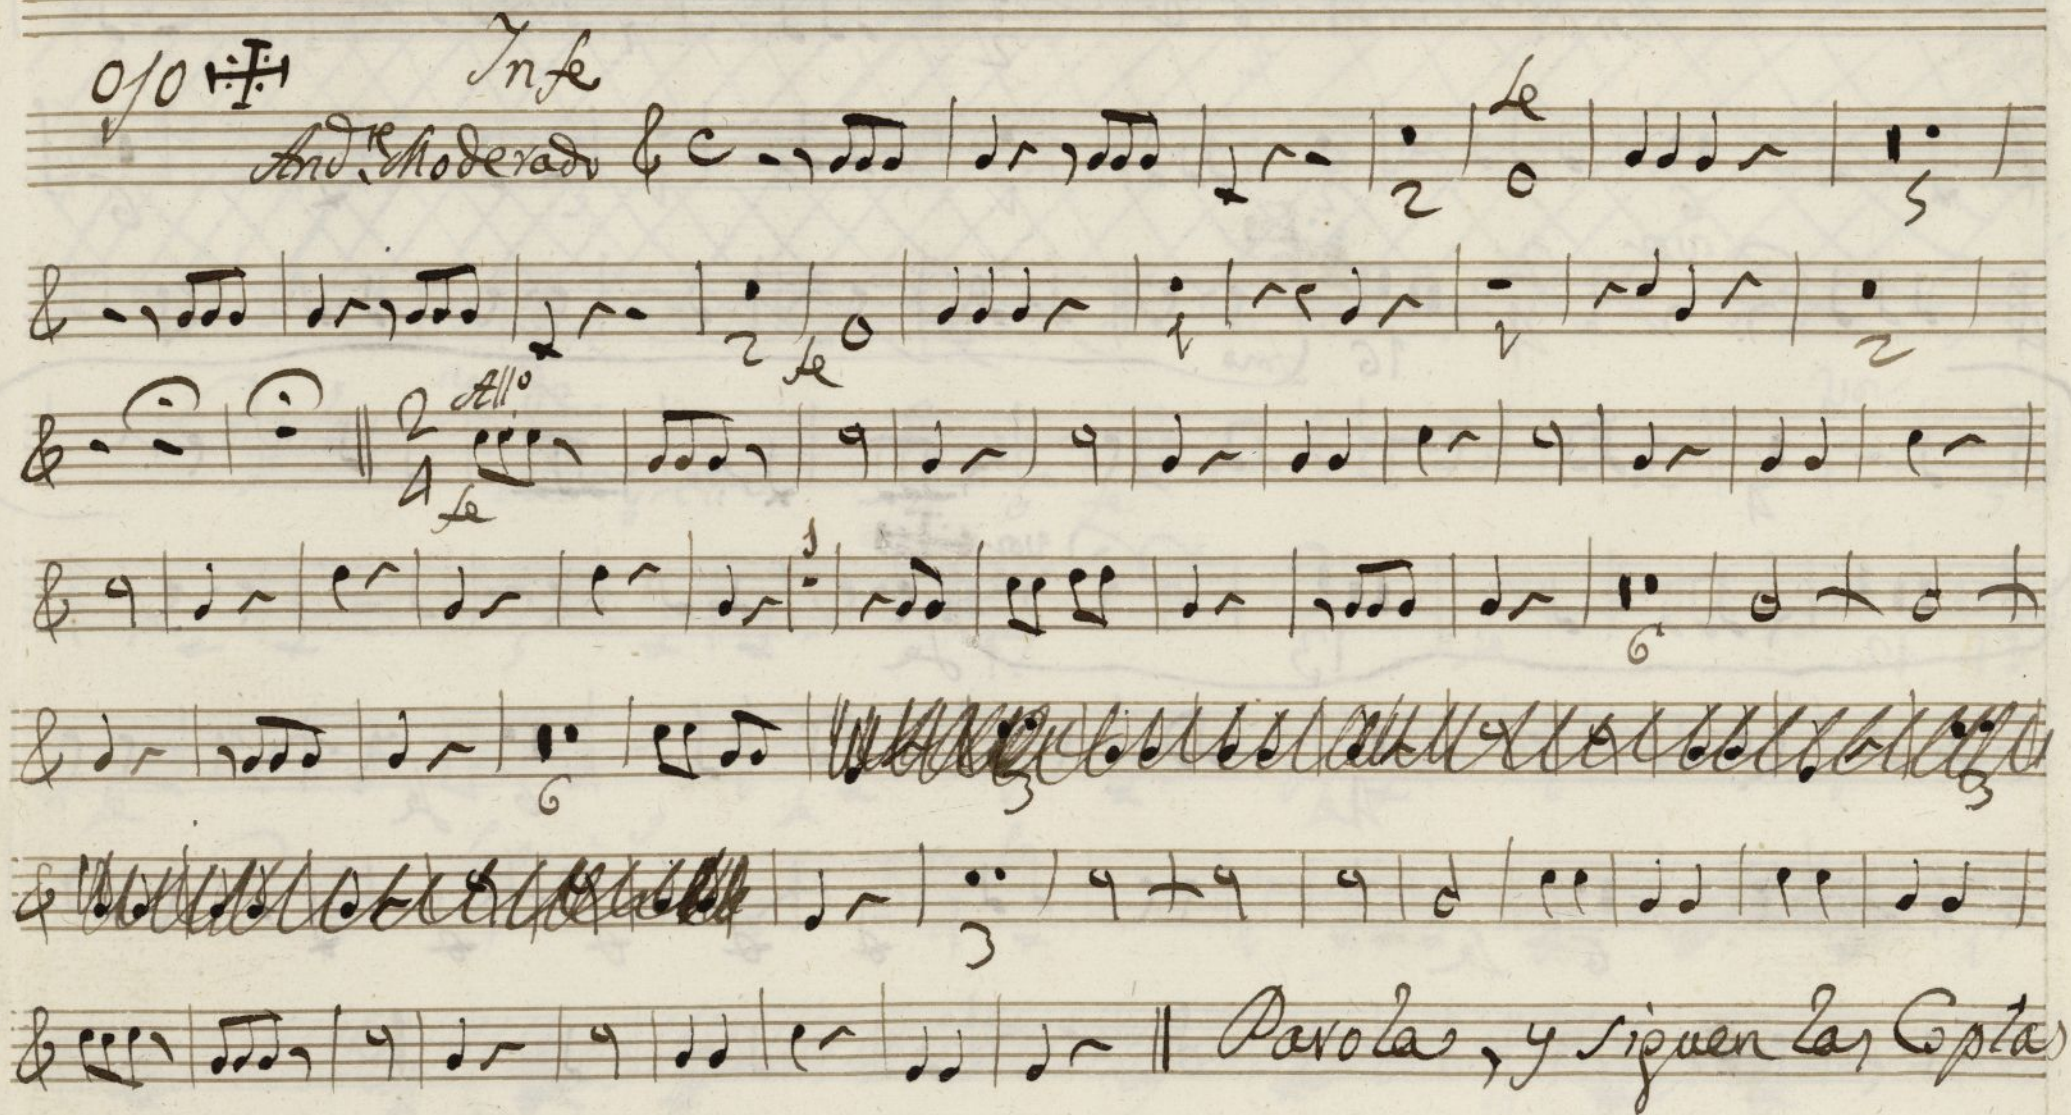 ojo Infe
And.te Moderado C fe
2 5
2 fe 1 1 2
2 4 All.o fe
1 6
6 3 3
3
Parola, y siguen las Coplas